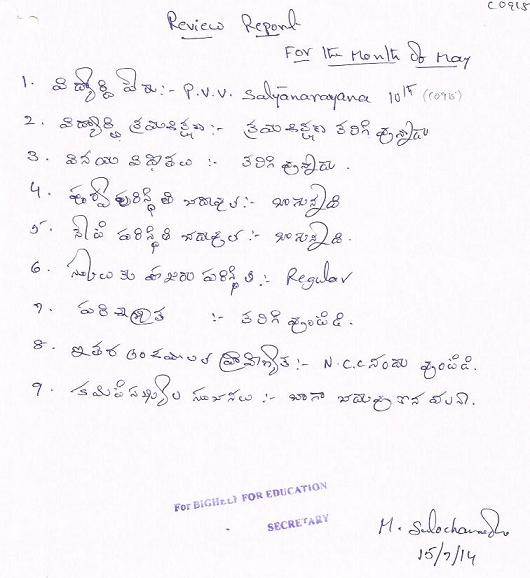 C0915
Review Report
For the Month of May
1. విద్యార్థి పేరు:- P.V.V. Satyanarayana 10th (C0915)
2. విద్యార్థి క్రమశిక్షణ :- క్రమశిక్షణ కలిగి వున్నాడు
3. వినయ విధేతలు :- కలిగి వున్నాడు.
4. పూర్వ పరిస్థితి చదువుల :- బాగున్నాది
5. నేటి పరిస్థితి చదువుల :- బాగున్నాది.
6. స్కూలుకు హాజరు పరిస్థితి :- Regular
7. పరిశుభ్రత :- కలిగి వుంటాడు.
8. ఇతర అంశములలో ప్రావీణ్యత :- N.C.C నందు వుంటాడు.
9. కమిటీ సభ్యుల సూచనలు :- బాగా చదువు కొన వలెను.
For BIGHELP FOR EDUCATION
SECRETARY
M. Sulochana
15/7/14